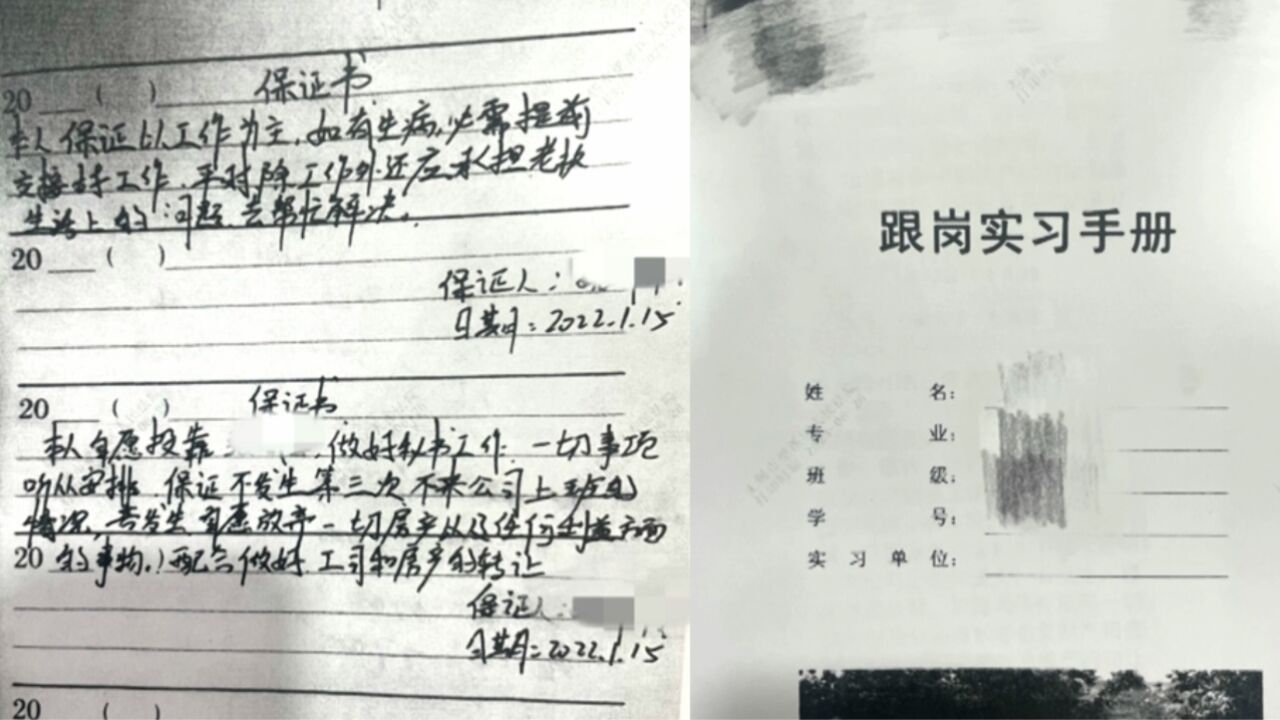 20 ( ) 保证书
本人保证以工作为主,如有生病,必需提前
交接好工作,平时除工作外还应承担老板
生活上的问题,去帮忙解决.
20 ( )
保证人:
日期:2022.1.15
20 ( ) 保证书
本人自愿投靠 ,做好秘书工作,一切事项
听从安排,保证不发生第三次不来公司上班的
情况,若发生自愿放弃一切房产以及任何利益方面
20 的事物.)配合做好工司和房产的转让
保证人:
日期:2022.1.15
20 ( )
跟岗实习手册
姓名:
专业:
班级:
学号:
实习单位: